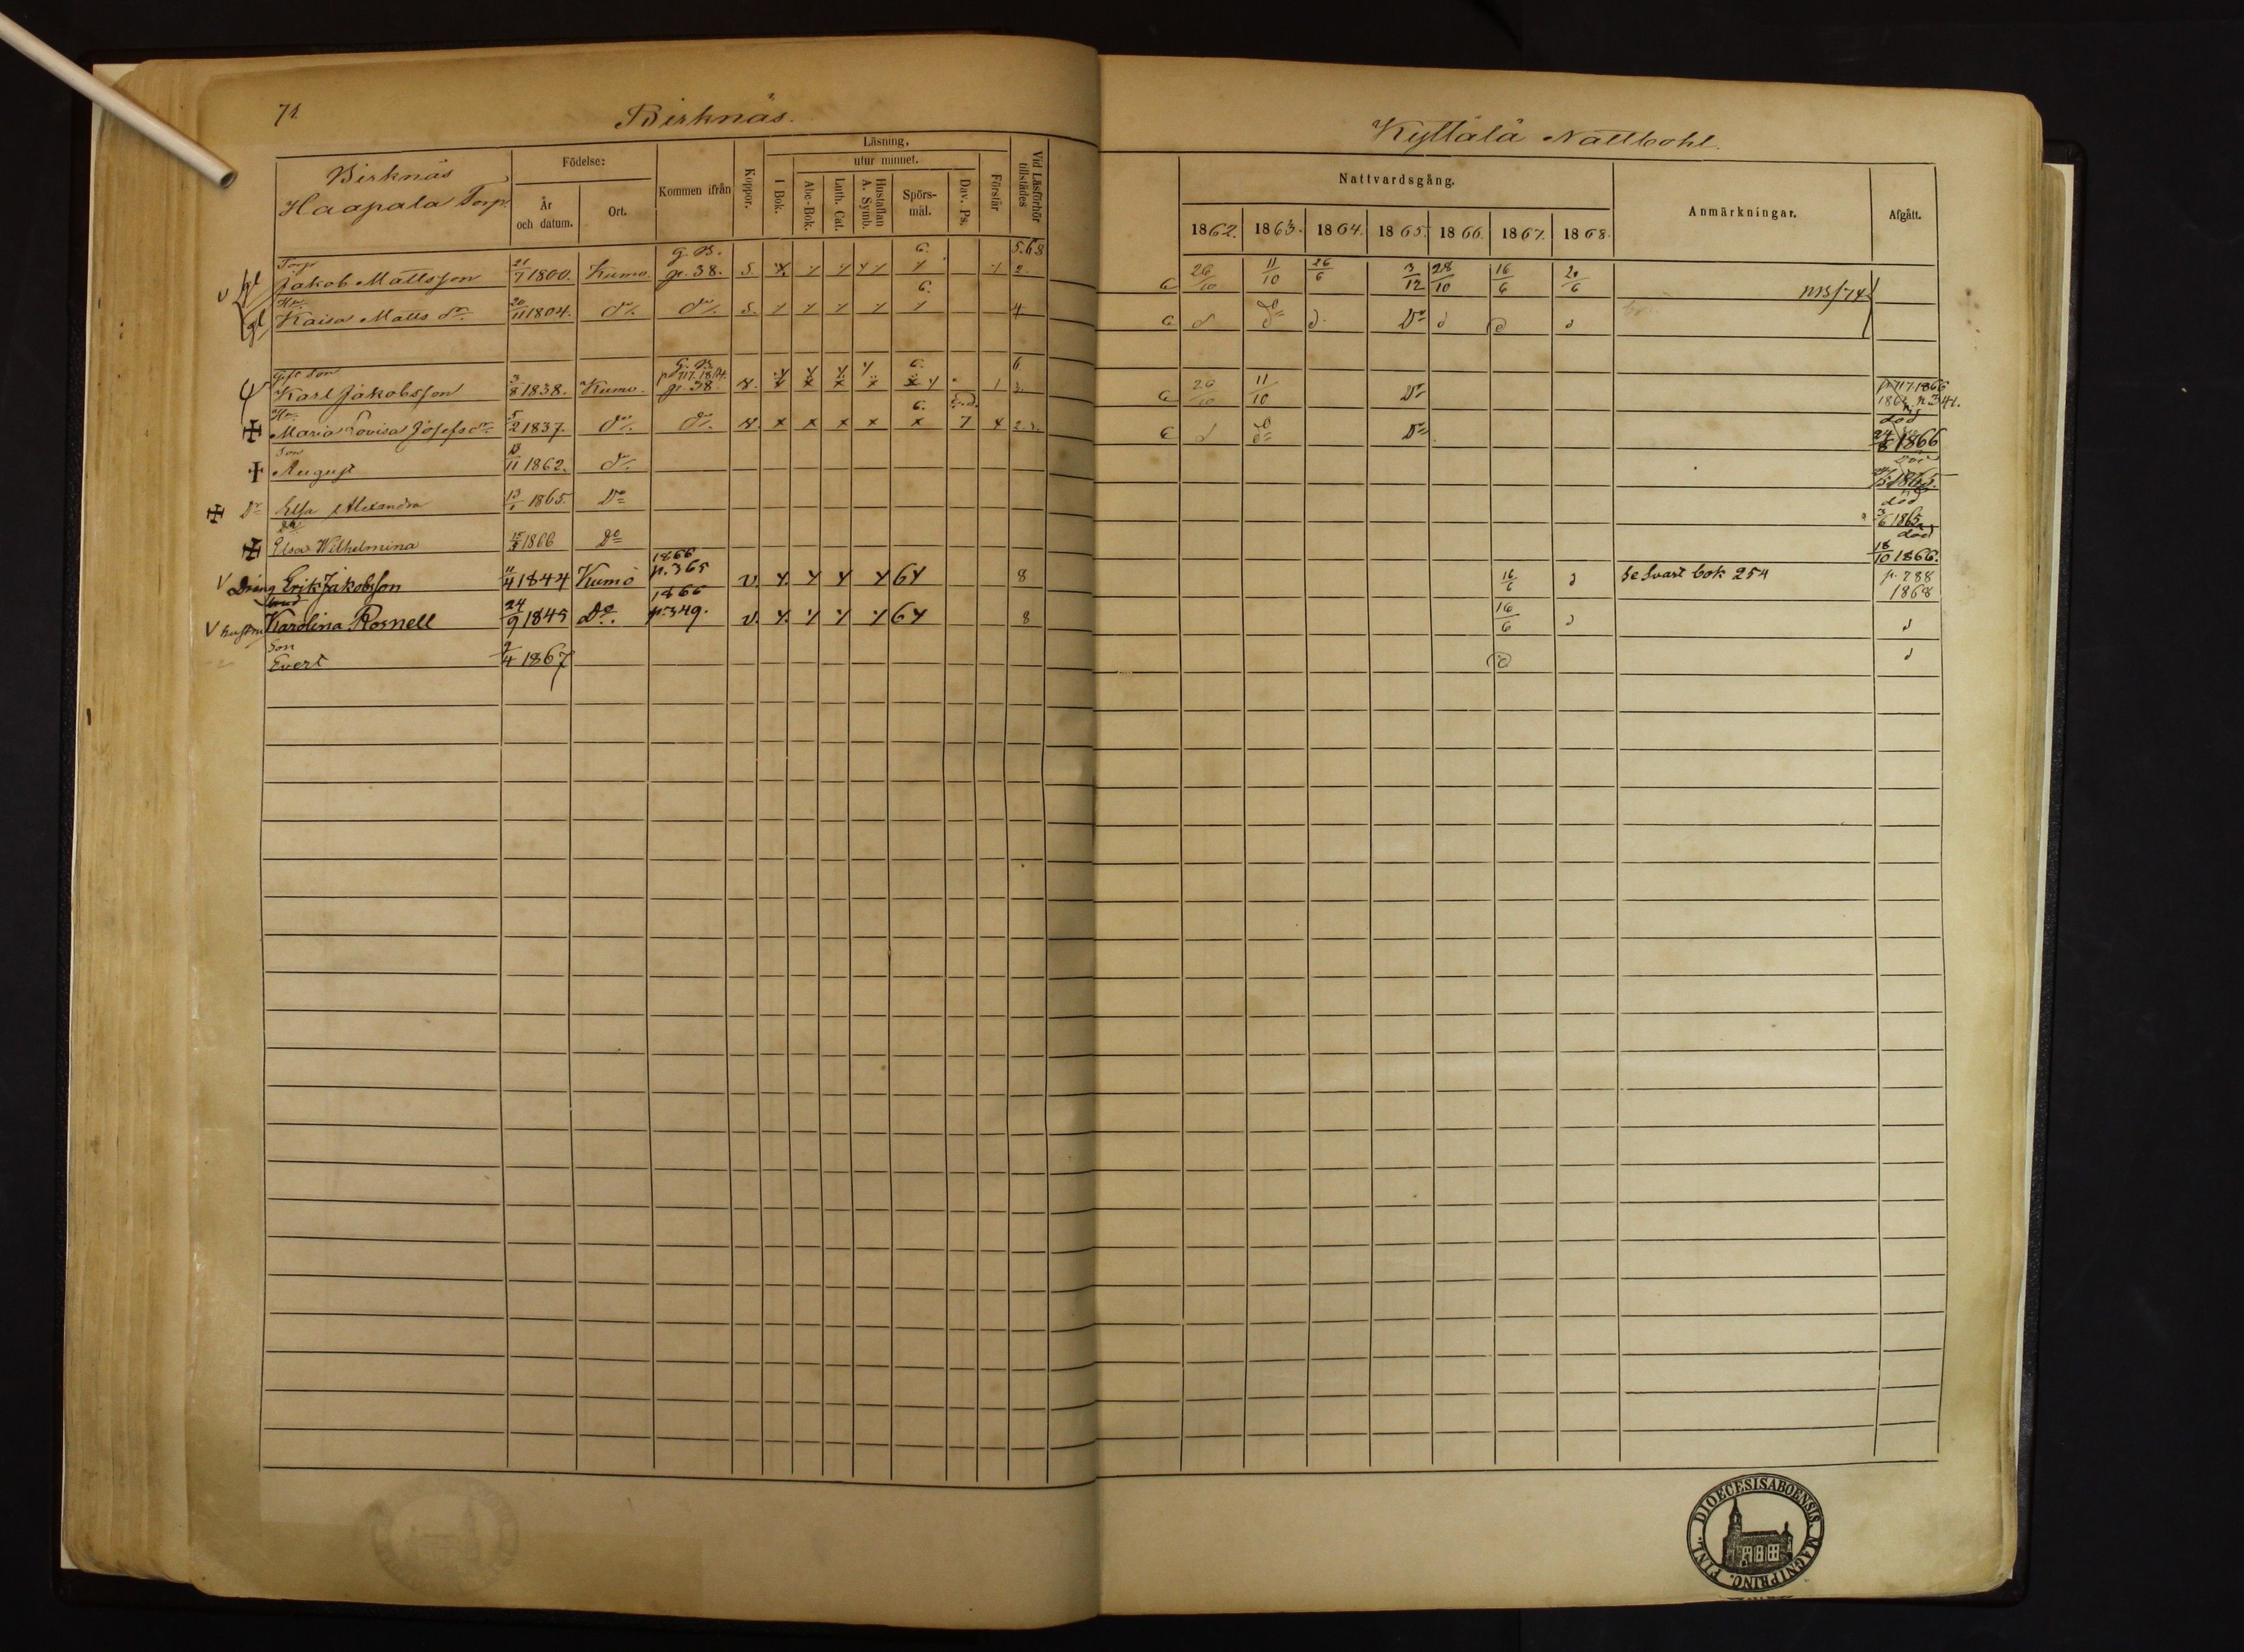 74.
Birknäs.
Birknäs
Haapala Torp.
Födelse:
År och datum.
Ort.
Kommen ifrån
Koppor.
Läsning,
I Bok.
utur minnet.
Abc-Bok.
Luth. Cat.
Hustaflan A. Symb.
Spörsmål.
Dav. Ps.
Förstår
Vid Läsförhör tillstädes
G. B. 6. 5.68
Torp
Jakob Mattsson 21/7 1800. Kumo. p. 38. S. 2.
Hu
Kaisa Matts dr. 20/11 1804. do do S. 4
Gift son G. B. p 717. 1864. 6. 6
Karl Jakobsson 3/8 1838. Kumo. p. 38 1 3.
Hu
Maria Lovisa Josefs dr. 5/2 1837. do. do. 7 4 2.3.
Son
August 11 1862. do.
Dr Elsa Alexandra 13/1 1865. Do
dr
Elsa Wilhelmina 1866 Do
1866
Dräng Erik Jakobsson 11/4 1844 Kumo p. 365 v. 8
1866
hustru Karolina Rosnell 24/9 1845 Do. p. 349. v. 8
Son
Evert 2/4 1867
Kyttälä Nattbohl.
Nattvardsgång.
Anmärkningar.
Afgått.
1862. 1863. 1864. 1865. 1866. 1867. 1868.
26/10 11/10 26/6 3/12 28/10 16/6 20/6
d do d. Do d d d
26/10 11/10 Do p. 717. 1866
d do Do död
24/8 1866
1865.
död
3/6 1865
död
18/10 1866.
16/6 d Se Svart bok 254 p. 288
1868
16/6 d d
d d
FINL. DIOECESISABOENSIS. MAGNIPRINC.